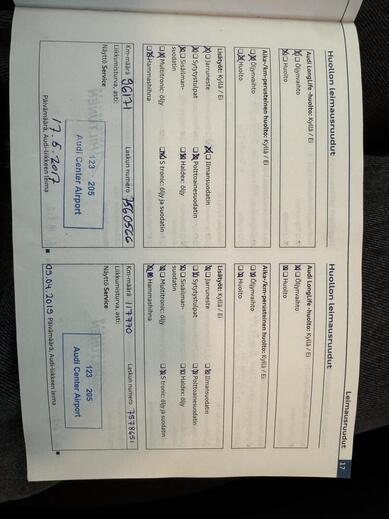 Leimausruudut 17
Huollon leimausruudut
Audi LongLife -huolto: Kyllä / Ei
Öljynvaihto
Huolto
Aika-/km-perusteinen huolto: Kyllä / Ei
Öljynvaihto
Huolto
Lisätyöt: Kyllä / Ei
Jarruneste
Ilmansuodatin
Sytytystulpat
Polttoainesuodatin
Sisäilman-
suodatin
Haldex: öljy
Multitronic: öljy
S tronic: öljy ja suodatin
Hammashihna
Km-määrä 96171
Laskun numero 7560566
Liikkumisturva, asti:
Näyttö Service
123 205
Audi Center Airport
17.5.2017
Päivämäärä, Audi-liikkeen leima
Huollon leimausruudut
Audi LongLife -huolto: Kyllä / Ei
Öljynvaihto
Huolto
Aika-/km-perusteinen huolto: Kyllä / Ei
Öljynvaihto
Huolto
Lisätyöt: Kyllä / Ei
Jarruneste
Ilmansuodatin
Sytytystulpat
Polttoainesuodatin
Sisäilman-
suodatin
Haldex: öljy
Multitronic: öljy
S tronic: öljy ja suodatin
Hammashihna
Km-määrä 117770
Laskun numero 7578651
Liikkumisturva, asti:
Näyttö Service
123 205
Audi Center Airport
09.04.2019 Päivämäärä, Audi-liikkeen leima